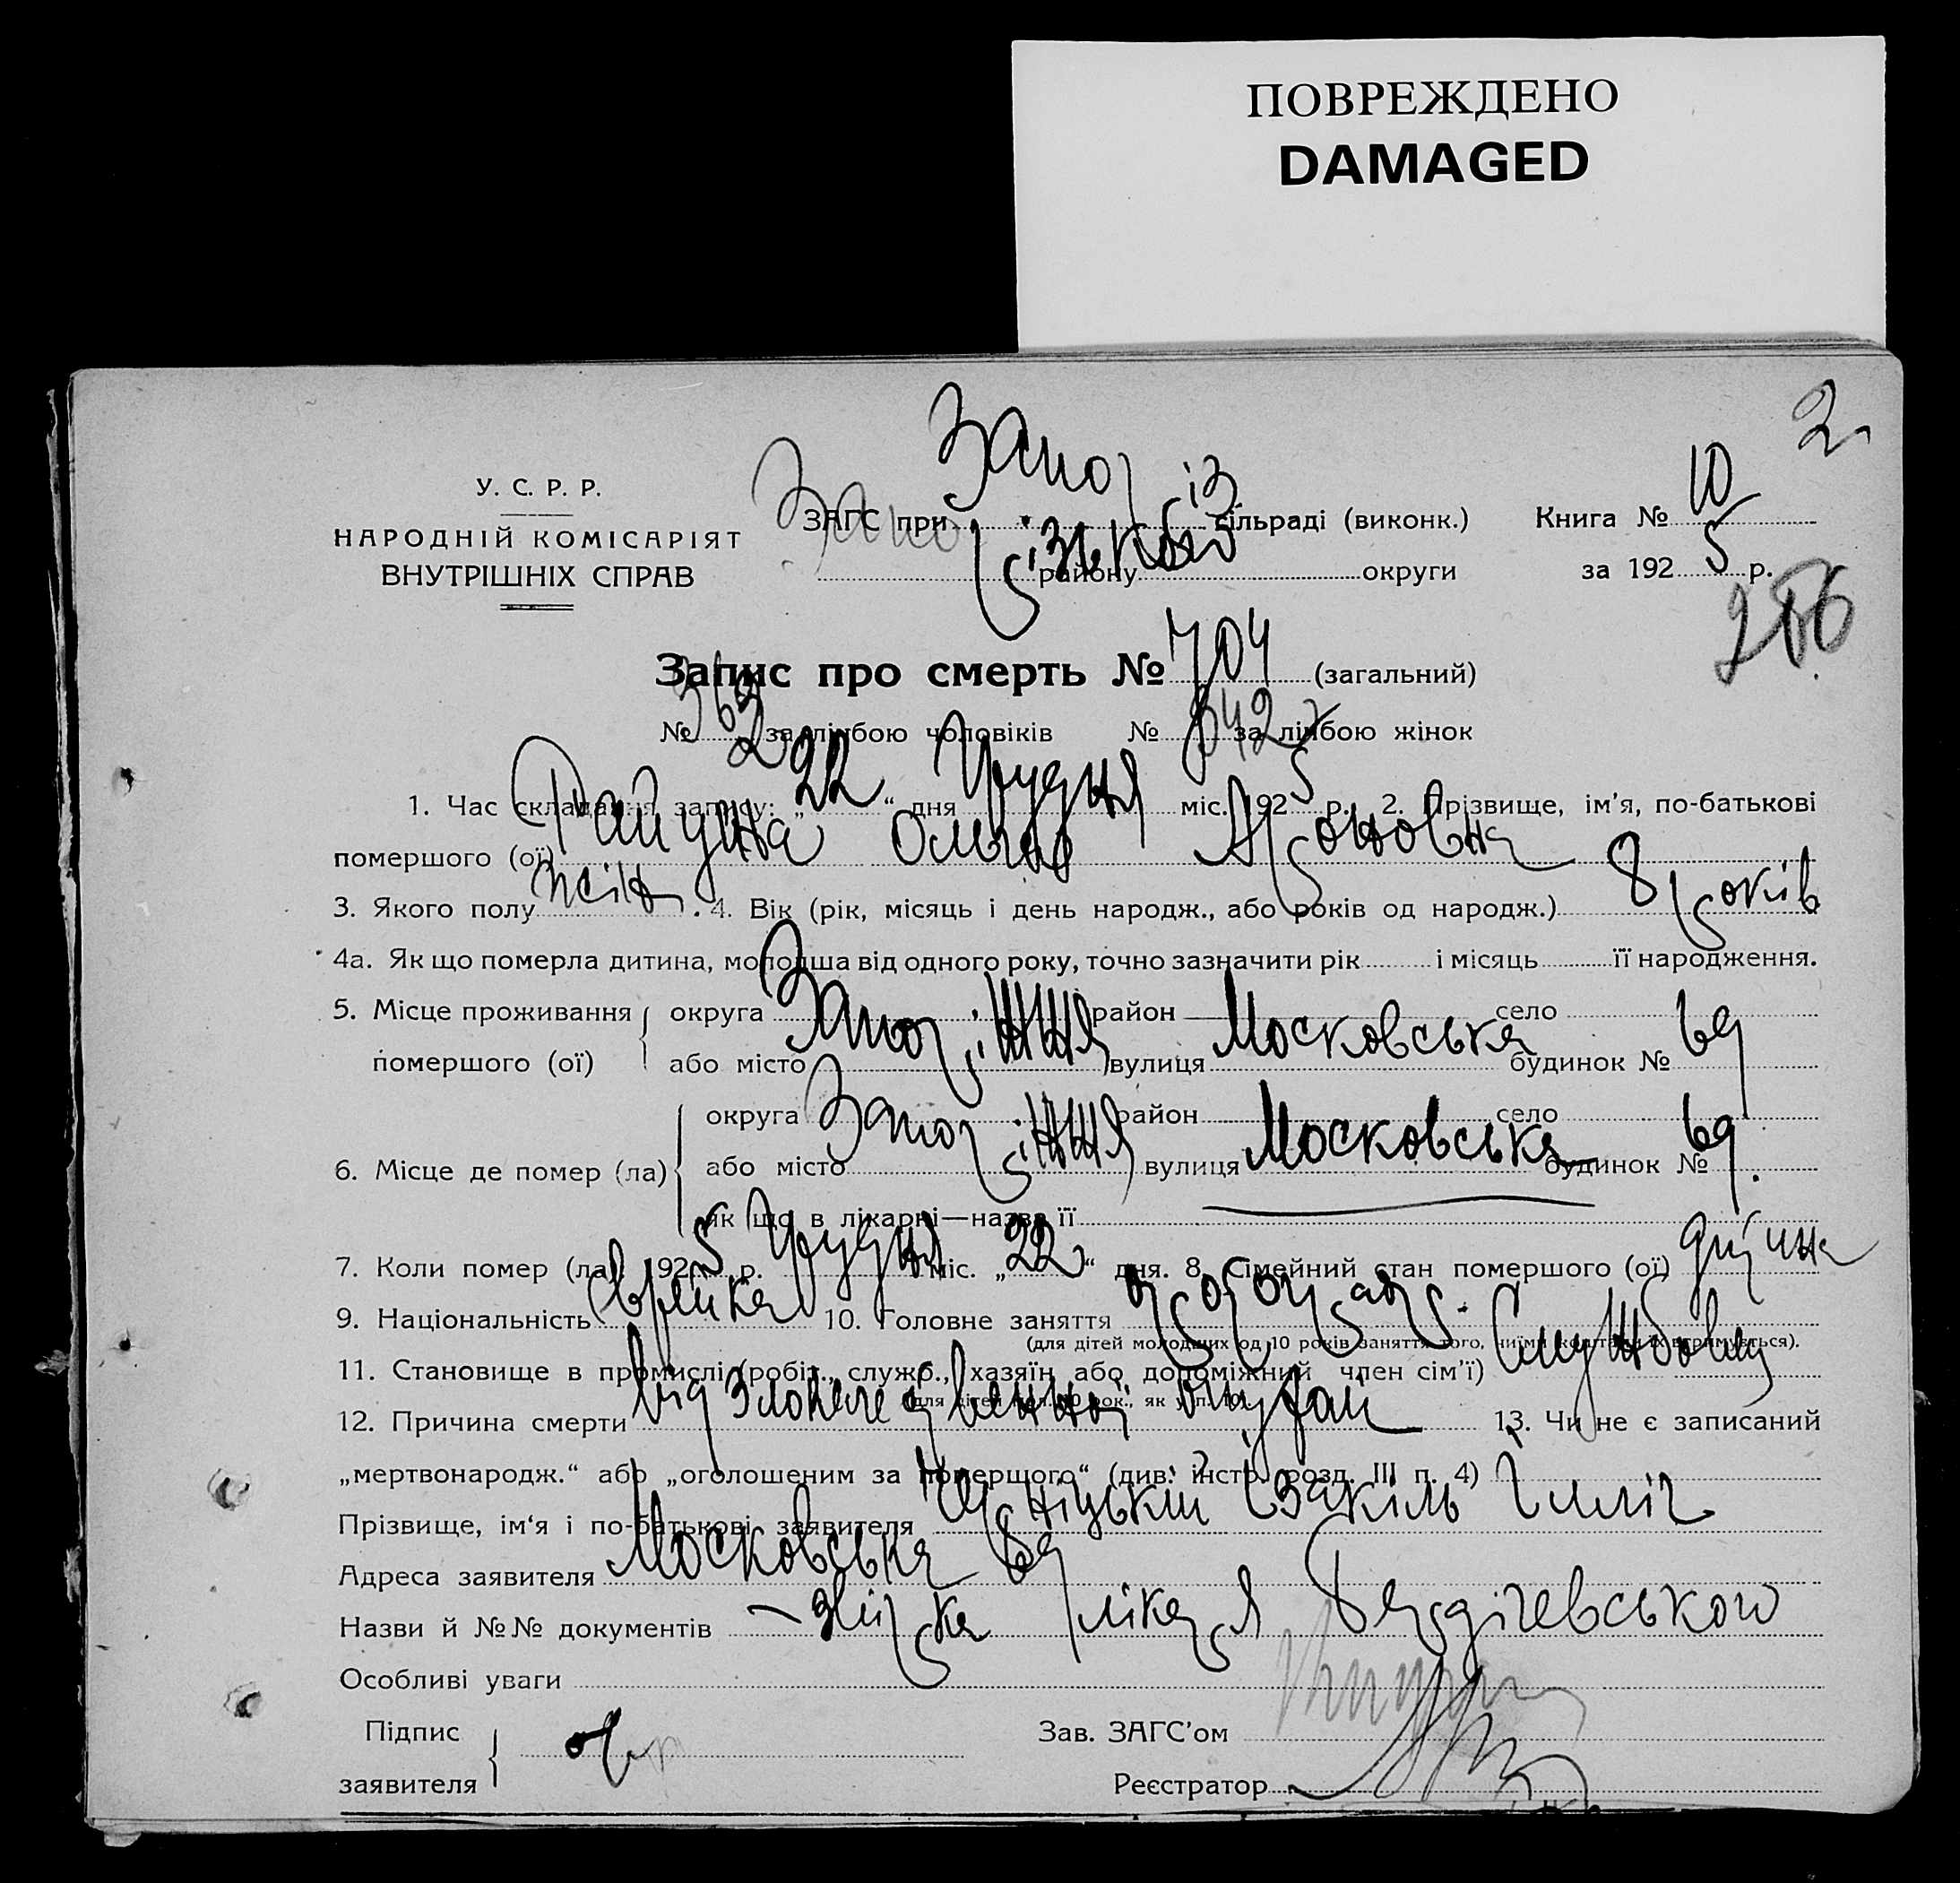 ПОВРЕЖДЕНО
DAMAGED
2
У. С. Р. Р.
НАРОДНІЙ КОМІСАРІЯТ
ВНУТРІШНІХ СПРАВ
ЗАГС при Запорізькій сільраді (виконк.)
району округи
Книга № 10
за 1925 р.
Запис про смерть № 704 (загальний)
№ 362 за лічбою чоловіків № 342 за лічбою жінок
1. Час складання запису: „22“ дня Грудня міс. 1925 р. 2. Прізвище, ім'я, по-батькові
помершого (ої) Ольга Ароновна
3. Якого полу жін. 4. Вік (рік, місяць і день народж., або років од народж.) 8 років
4а. Як що померла дитина, молодша від одного року, точно зазначити рік і місяць її народження.
5. Місце проживання помершого (ої) округа Запоріжжя район село
або місто вулиця Московська будинок № 69
6. Місце де помер (ла) округа Запоріжжя район село
або місто вулиця Московська будинок № 69.
як що в лікарні—назва її
7. Коли помер (ла) 1925 р. Грудня міс. „22“ дня. 8. Сімейний стан помершого (ої) дитина
9. Національність еврейка 10. Головне заняття
(для дітей молодших од 10 років заняття того, чиїми коштами їх втримується).
11. Становище в промислі (робіт., служб., хазяїн або допоміжний член сім'ї) Службовец
12. Причина смерти від 13. Чи не є записаний
„мертвонародж.“ або „оголошеним за померщого“ (див. інстр. розд. III п. 4)
Прізвище, ім'я і по-батькові заявителя
Адреса заявителя Московська 69
Назви й №№ документів – лікаря Бердічевського
Особливі уваги
Підпис
заявителя
Зав. ЗАГС'ом
Реєстратор